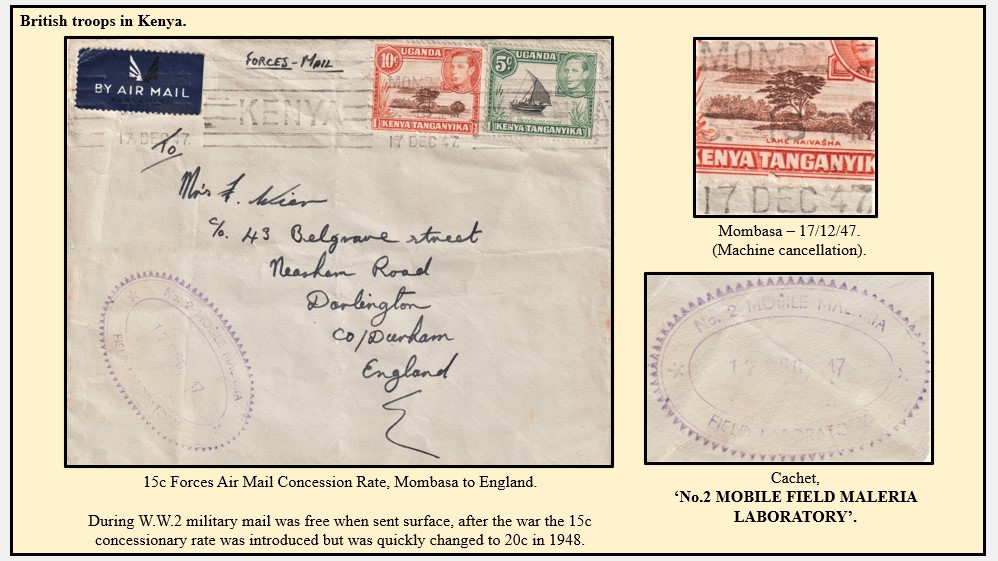 British troops in Kenya.
BY AIR MAIL
FORCES-MAIL
10c
UGANDA
KENYA TANGANYIKA
5c
UGANDA
KENYA TANGANYIKA
MOM
KENYA
17 DEC 47.
17 DEC 47.
To
Mrs F.
c/o. 43 Belgrave street
Neasham Road
Darlington
CO/Durham
England
No. 2 MOBILE MALARIA
FIELD
47
15c Forces Air Mail Concession Rate, Mombasa to England.
During W.W.2 military mail was free when sent surface, after the war the 15c
concessionary rate was introduced but was quickly changed to 20c in 1948.
MOM
LAKE NAIVASHA
KENYA TANGANYIK
17 DEC 47
Mombasa – 17/12/47.
(Machine cancellation).
No. 2 MOBILE MALARIA
47
FIELD LABORATORY
Cachet,
‘No.2 MOBILE FIELD MALERIA
LABORATORY’.